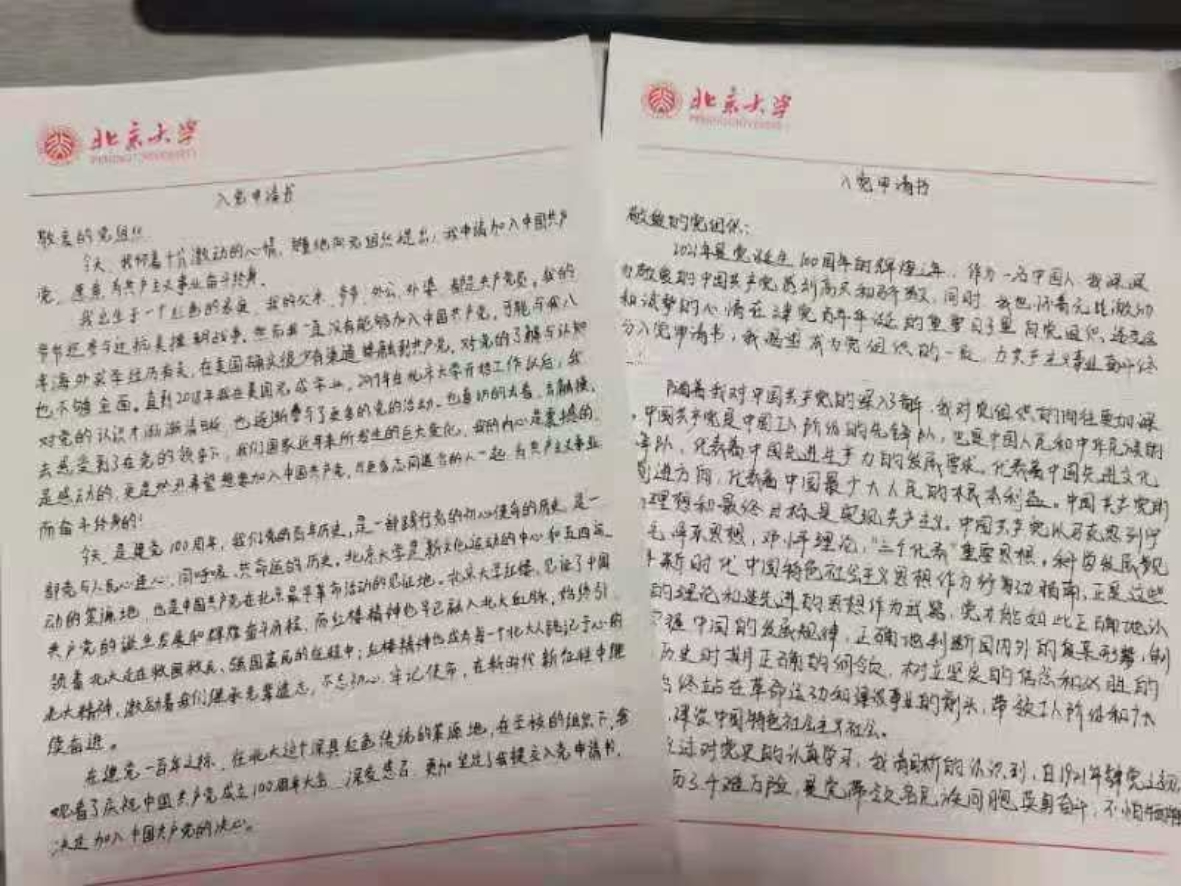 北京大学
PEKING UNIVERSITY
入党申请书
敬爱的党组织
今天,我怀着十分激动的心情,郑重地向党组织提出:我申请加入中国共产
党,愿意为共产主义事业奋斗终身。
我出生于一个红色的家庭,我的父亲、爷爷、外公、外婆,都是共产党员。我的
爷爷还参与过抗美援朝战争。然而我一直没有能够加入中国共产党,可能与我八
年海外求学经历有关,在美国确实很少有渠道接触到共产党,对党的了解与认知
也不够全面。直到2018年我在美国完成学业,2019年在北京大学开始工作以后,我
对党的认识才渐渐清晰,也逐渐参与了更多的党的活动,也喜切的去看、去触摸、
去感受到了在党的领导下,我们国家近年来所发生的巨大变化,我的内心是震撼的、
是感动的,更是热烈希望想要加入中国共产党,与更多志同道合的人一起,为共产主义事业
而奋斗终身的!
今天,是建党100周年,我们党的百年历史,是一部践行党的初心使命的历史,是一
部党与人民心连心、同呼吸、共命运的历史。北京大学是新文化运动的中心和五四运
动的策源地,也是中国共产党在北京最早革命活动的见证地。北京大学红楼,见证了中国
共产党的诞生发展和辉煌奋斗历程,而红楼精神也早已融入北大血脉,始终引
领着北大走在救国救民、强国富民的征程中;红楼精神也成为每一个北大人铭记于心的
北大精神,激励着我们继承先辈遗志,不忘初心,牢记使命,在新时代新征程中继
续奋进。
在建党一百年之际,在北大这个深具红色传统的策源地,在学校的组织下,我
观看了庆祝中国共产党成立100周年大会,深受感召,更加坚定了我提交入党申请书,
决定加入中国共产党的决心。
北京大学
PEKING UNIVERSITY
入党申请书
敬爱的党组织:
2021年是党诞生100周年的辉煌之年,作为一名中国人,我深深
为敬爱的中国共产党感到高兴和骄傲,同时,我也怀着无比激动
和诚挚的心情在建党百年华诞的重要日子里向党组织递交这
份入党申请书,我渴望成为党组织的一员,为共产主义事业奋斗终
随着我对中国共产党的深入了解,我对党组织的向往更加深
中国共产党是中国工人阶级的先锋队,也是中国人民和中华民族的
锋队,代表着中国先进生产力的发展要求,代表着中国先进文化
前进方向,代表着中国最广大人民的根本利益。中国共产党的
理想和最终目标是实现共产主义。中国共产党以马克思列宁
毛泽东思想,邓小平理论,“三个代表”重要思想,科学发展观
新时代中国特色社会主义思想作为行动指南,正是这些
的理论和进步先进的思想作为武器,党才能如此正确地认
掌握中国的发展规律,正确地判断国内外的复杂形势,制
历史时期正确的纲领,树立坚定的信念和必胜的
始终站在革命运动和建设事业的前头,带领工人阶级和广大
建设中国特色社会主义社会。
通过对党史的认真学习,我清晰的认识到,自1921年建党之初
历了千难万险,是党带领各民族同胞英勇奋斗,不怕牺牲